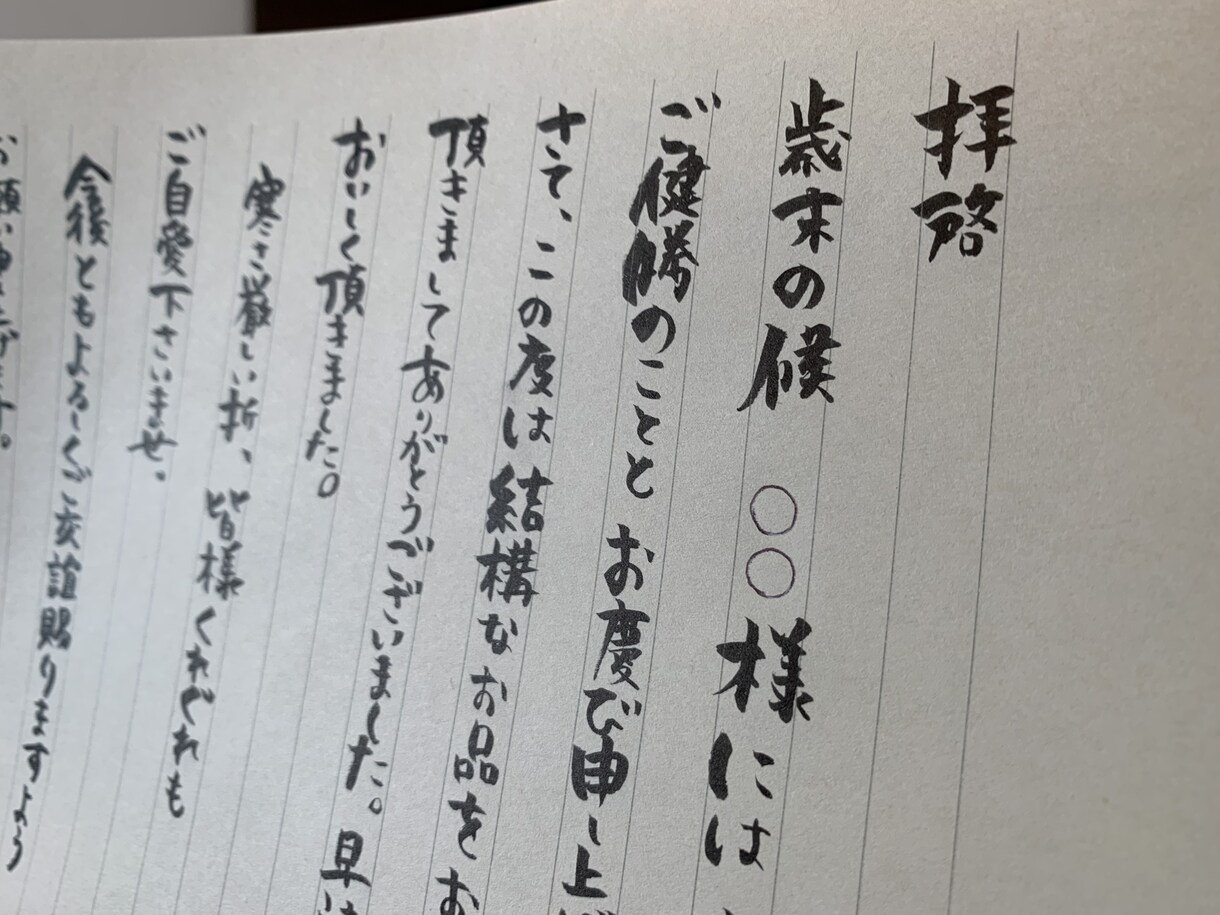 拝啓
歳末の候 ○○様には
ご健勝のことと お慶び申し上げ
さて、この度は結構なお品をお
頂きましてありがとうございました。早
おいしく頂きました。
寒さ厳しい折、皆様くれぐれも
ご自愛下さいませ。
今後ともよろしくご交誼賜りますよう
お願い申し上げます。